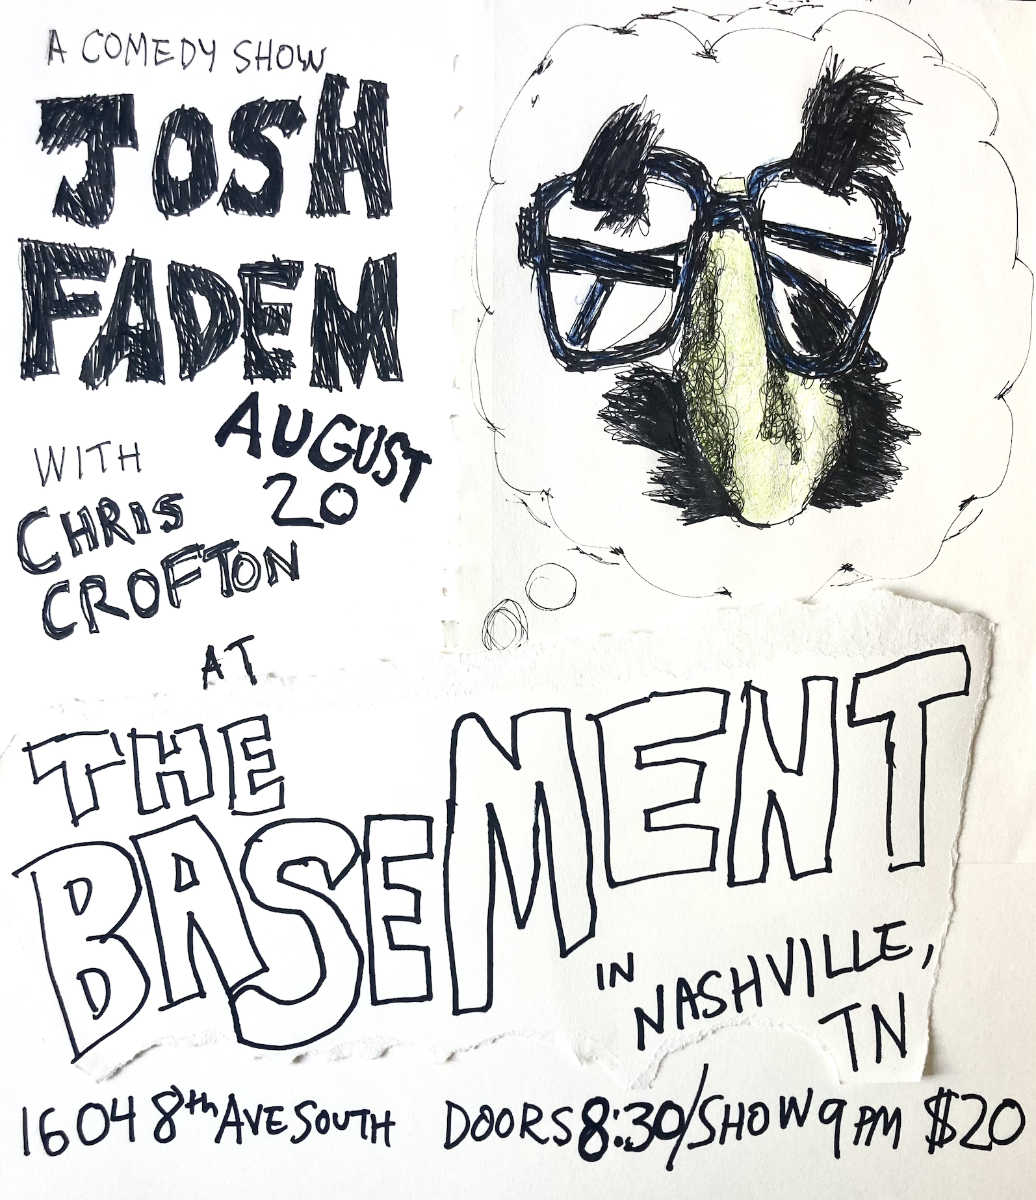 A COMEDY SHOW
JOSH
FADEM
AUGUST
20
WITH
CHRIS
CROFTON
AT
THE
BASEMENT
IN
NASHVILLE,
TN
1604 8th AVE SOUTH DOORS 8:30/SHOW 9 PM $20